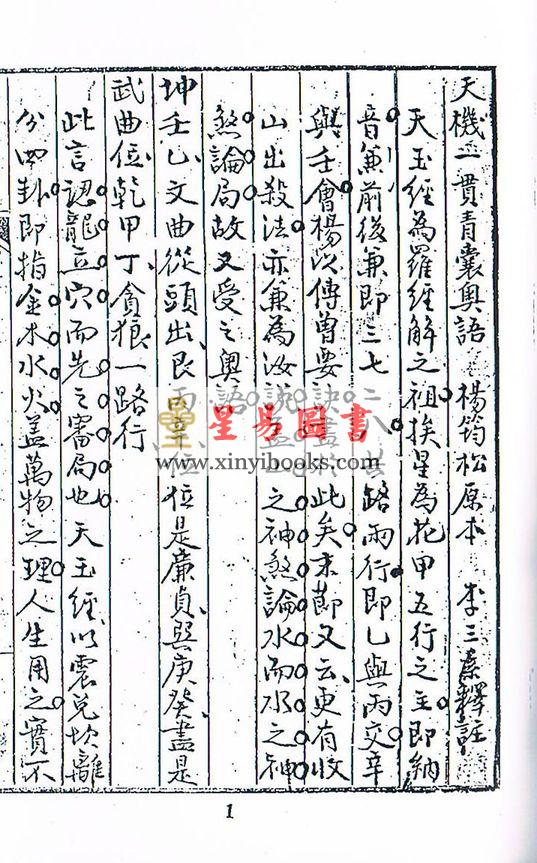 天機一貫青囊奧語 楊筠松原本 李三素釋註
天玉經為羅經解之祖挨星為花甲五行之主即納
音兼前後兼即三七二八共路兩行即乙與丙交辛
與壬會楊以傳曾要訣盡於此矣末節又云更有收
山出殺法亦兼為汝說之神煞論水而水之神
煞論局故又受之奧語
坤壬乙文曲從頭出艮丙辛位位是廉貞巽庚癸盡是
武曲位乾甲丁貪狼一路行
此言認龍立穴而先之審局也天玉經以震兌坎離
分四卦即指金木水火蓋萬物之理人生用之實不
星易圖書
www.xinyibooks.com
1